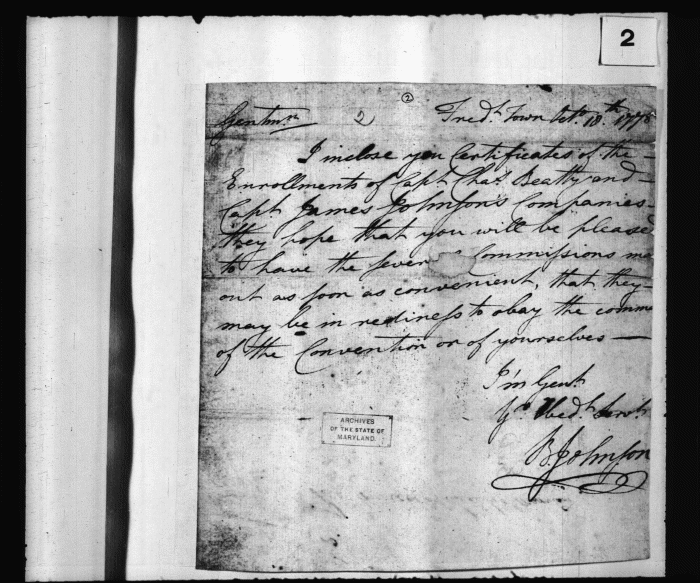 2
②
2
Gentmn
Fredk Town Octr. 18th 1775
I inclose you Certificates of the
Enrollments of Capt Chas. Beatty and
Capt James Johnson's Companies
they hope that you will be pleased
to have the sever Commissions ma
out as soon as convenient, that they
may be in rediness to obay the comm
of the Convention or of yourselves —
I'm Gent.
Yr. Obedt. Servt
B Johnson
ARCHIVES
OF THE STATE OF
MARYLAND.